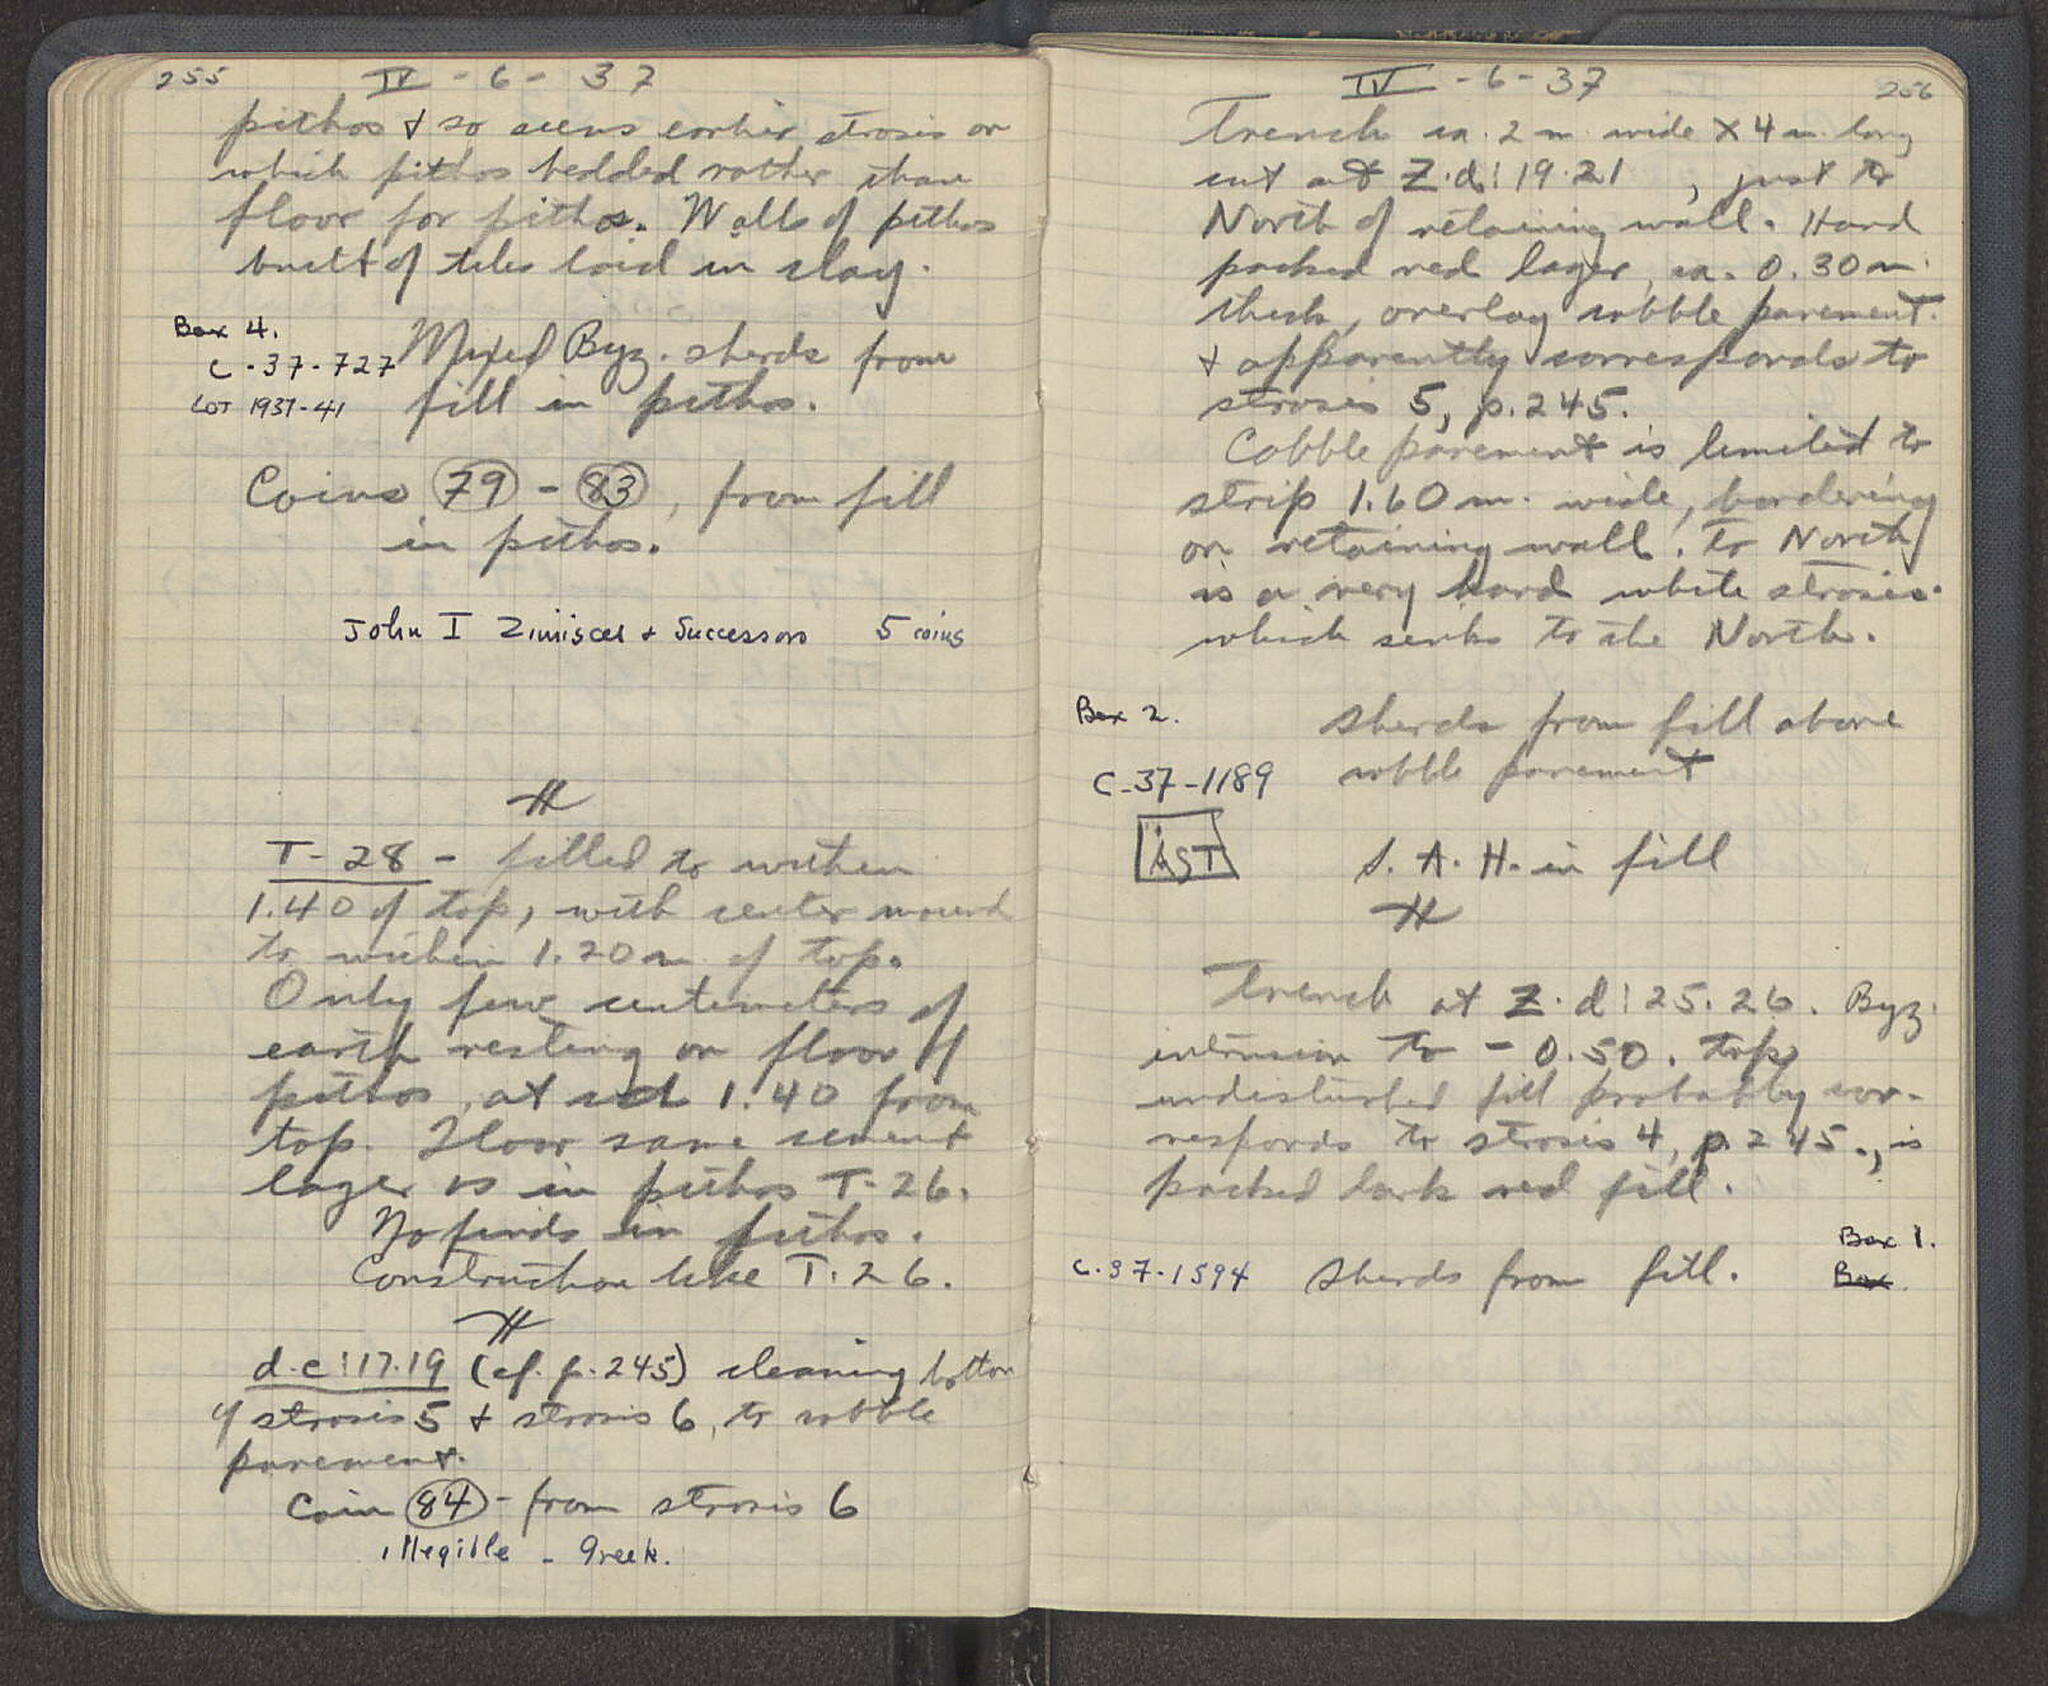 255
IV - 6 - 37
pithos & so seems earlier strosis on
which pithos bedded rather than
floor for pithos. Walls of pithos
built of tiles laid in clay.
Box 4.
C-37-727
LOT 1937-41
Mixed Byz. sherds from
fill in pithos.
Coins 79 - 83, from fill
in pithos.
John I Zimisces + Successors 5 coins
T-28 - filled to within
1.40 of top, with center mound
to within 1.20 m of top.
Only few centimeters of
earth resting on floor of
pithos, at 1.40 from
top. Floor same cement
layer as in pithos T-26.
No finds in pithos.
Construction like T.26.
d-e:17.19 (cf. p.245) cleaning bottom
of strosis 5 & strosis 6, to cobble
pavement.
Coin 84 - from strosis 6
illegible - Greek.
256
IV - 6 - 37
Trench ca. 2 m. wide x 4 m. long
cut at Z.d:19.21, just to
North of retaining wall. Hard
packed red layer, ca. 0.30 m.
thick, overlay cobble pavement.
& apparently corresponds to
strosis 5, p.245.
Cobble pavement is limited to
strip 1.60 m. wide, bordering
on retaining wall. To North
is a very hard white strosis.
which sinks to the North.
Box 2.
C-37-1189
Sherds from fill above
cobble pavement
AST
S. A. H. in fill
Trench at Z.d:25.26. Byz.
intrusion to - 0.50. top
undisturbed fill probably cor-
responds to strosis 4, p.245., is
packed dark red fill.
C-37-1594
Sherds from fill.
Box 1.
Box.